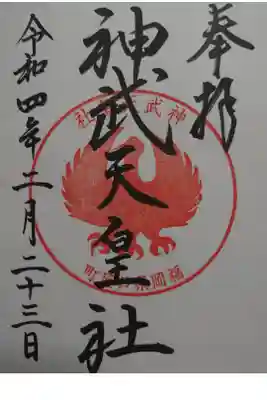 奉拝
神武天皇社
令和四年二月二十三日